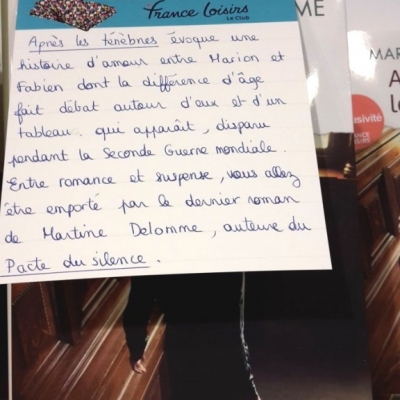 France Loisirs
Le Club
Après les ténèbres évoque une
histoire d'amour entre Marion et
Fabien dont la différence d'âge
fait débat autour d'eux et d'un
tableau qui apparaît, disparu
pendant la Seconde Guerre mondiale.
Entre romance et suspense, vous allez
être emporté par le dernier roman
de Martine Delomme, auteure du
Pacte du silence.
ME
MAR
A